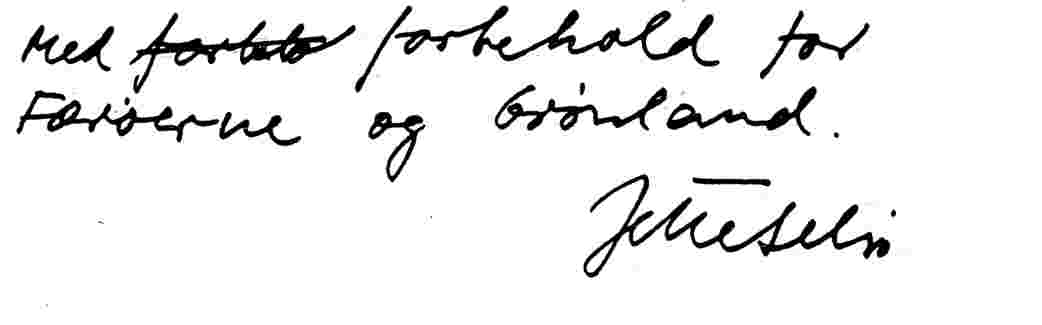 Med forbehold for
Færøerne og Grønland.